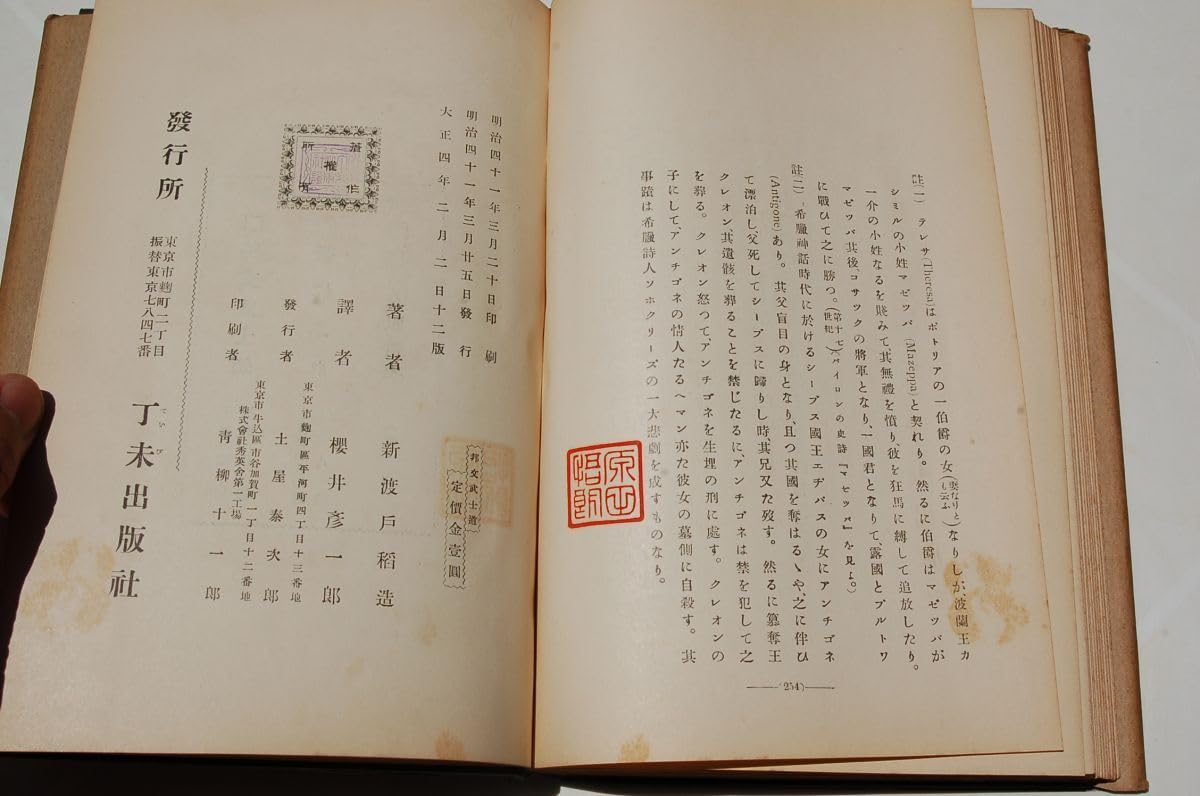 註(一) テレサ(Theresa)はポトリアの一伯爵の女(妻なりとも云ふ)なりしが、波蘭王カ
シミルの小姓マゼッパ(Mazeppa)と契れり。然るに伯爵はマゼッパが
一介の小姓なるを賤みて、其無禮を憤り、彼を狂馬に縛して追放したり。
マゼッパ其後コサックの將軍となり、一國君となりて、露國とプルトワ
に戰ひて之に勝つ。(第十七世紀)(バイロンの史詩『マゼッパ』を見よ。)
註(二) 希臘神話時代に於けるシープス國王エヂパスの女にアンチゴネ
(Antigone)あり。其父盲目の身となり、且つ其國を奪はるヽや、之に伴ひ
て漂泊し、父死してシープスに歸りし時、其兄又た歿す。然るに簒奪王
クレオン、其遺骸を葬ることを禁じたるに、アンチゴネは禁を犯して之
を葬る。クレオン怒つて、アンチゴネを生埋の刑に處す。クレオンの
子にして、アンチゴネの情人たるヘマン亦た彼女の墓側に自殺す。其
事蹟は希臘詩人ソホクリーズの一大悲劇を成すものなり。
(254)
明治四十一年三月二十日印刷
明治四十一年三月廿五日發行
大正四年二月二日十二版
著作權所有
邦文武士道
定價金壹圓
著者 新渡戶稻造
譯者 櫻井彥一郎
東京市麴町區平河町四丁目十三番地
發行者 土屋泰次郎
東京市牛込區市谷加賀町一丁目十二番地
株式會社秀英舍第一工場
印刷者 青柳十一郎
發行所
東京市麴町二丁目
振替東京七八四七番
丁未出版社
ていび